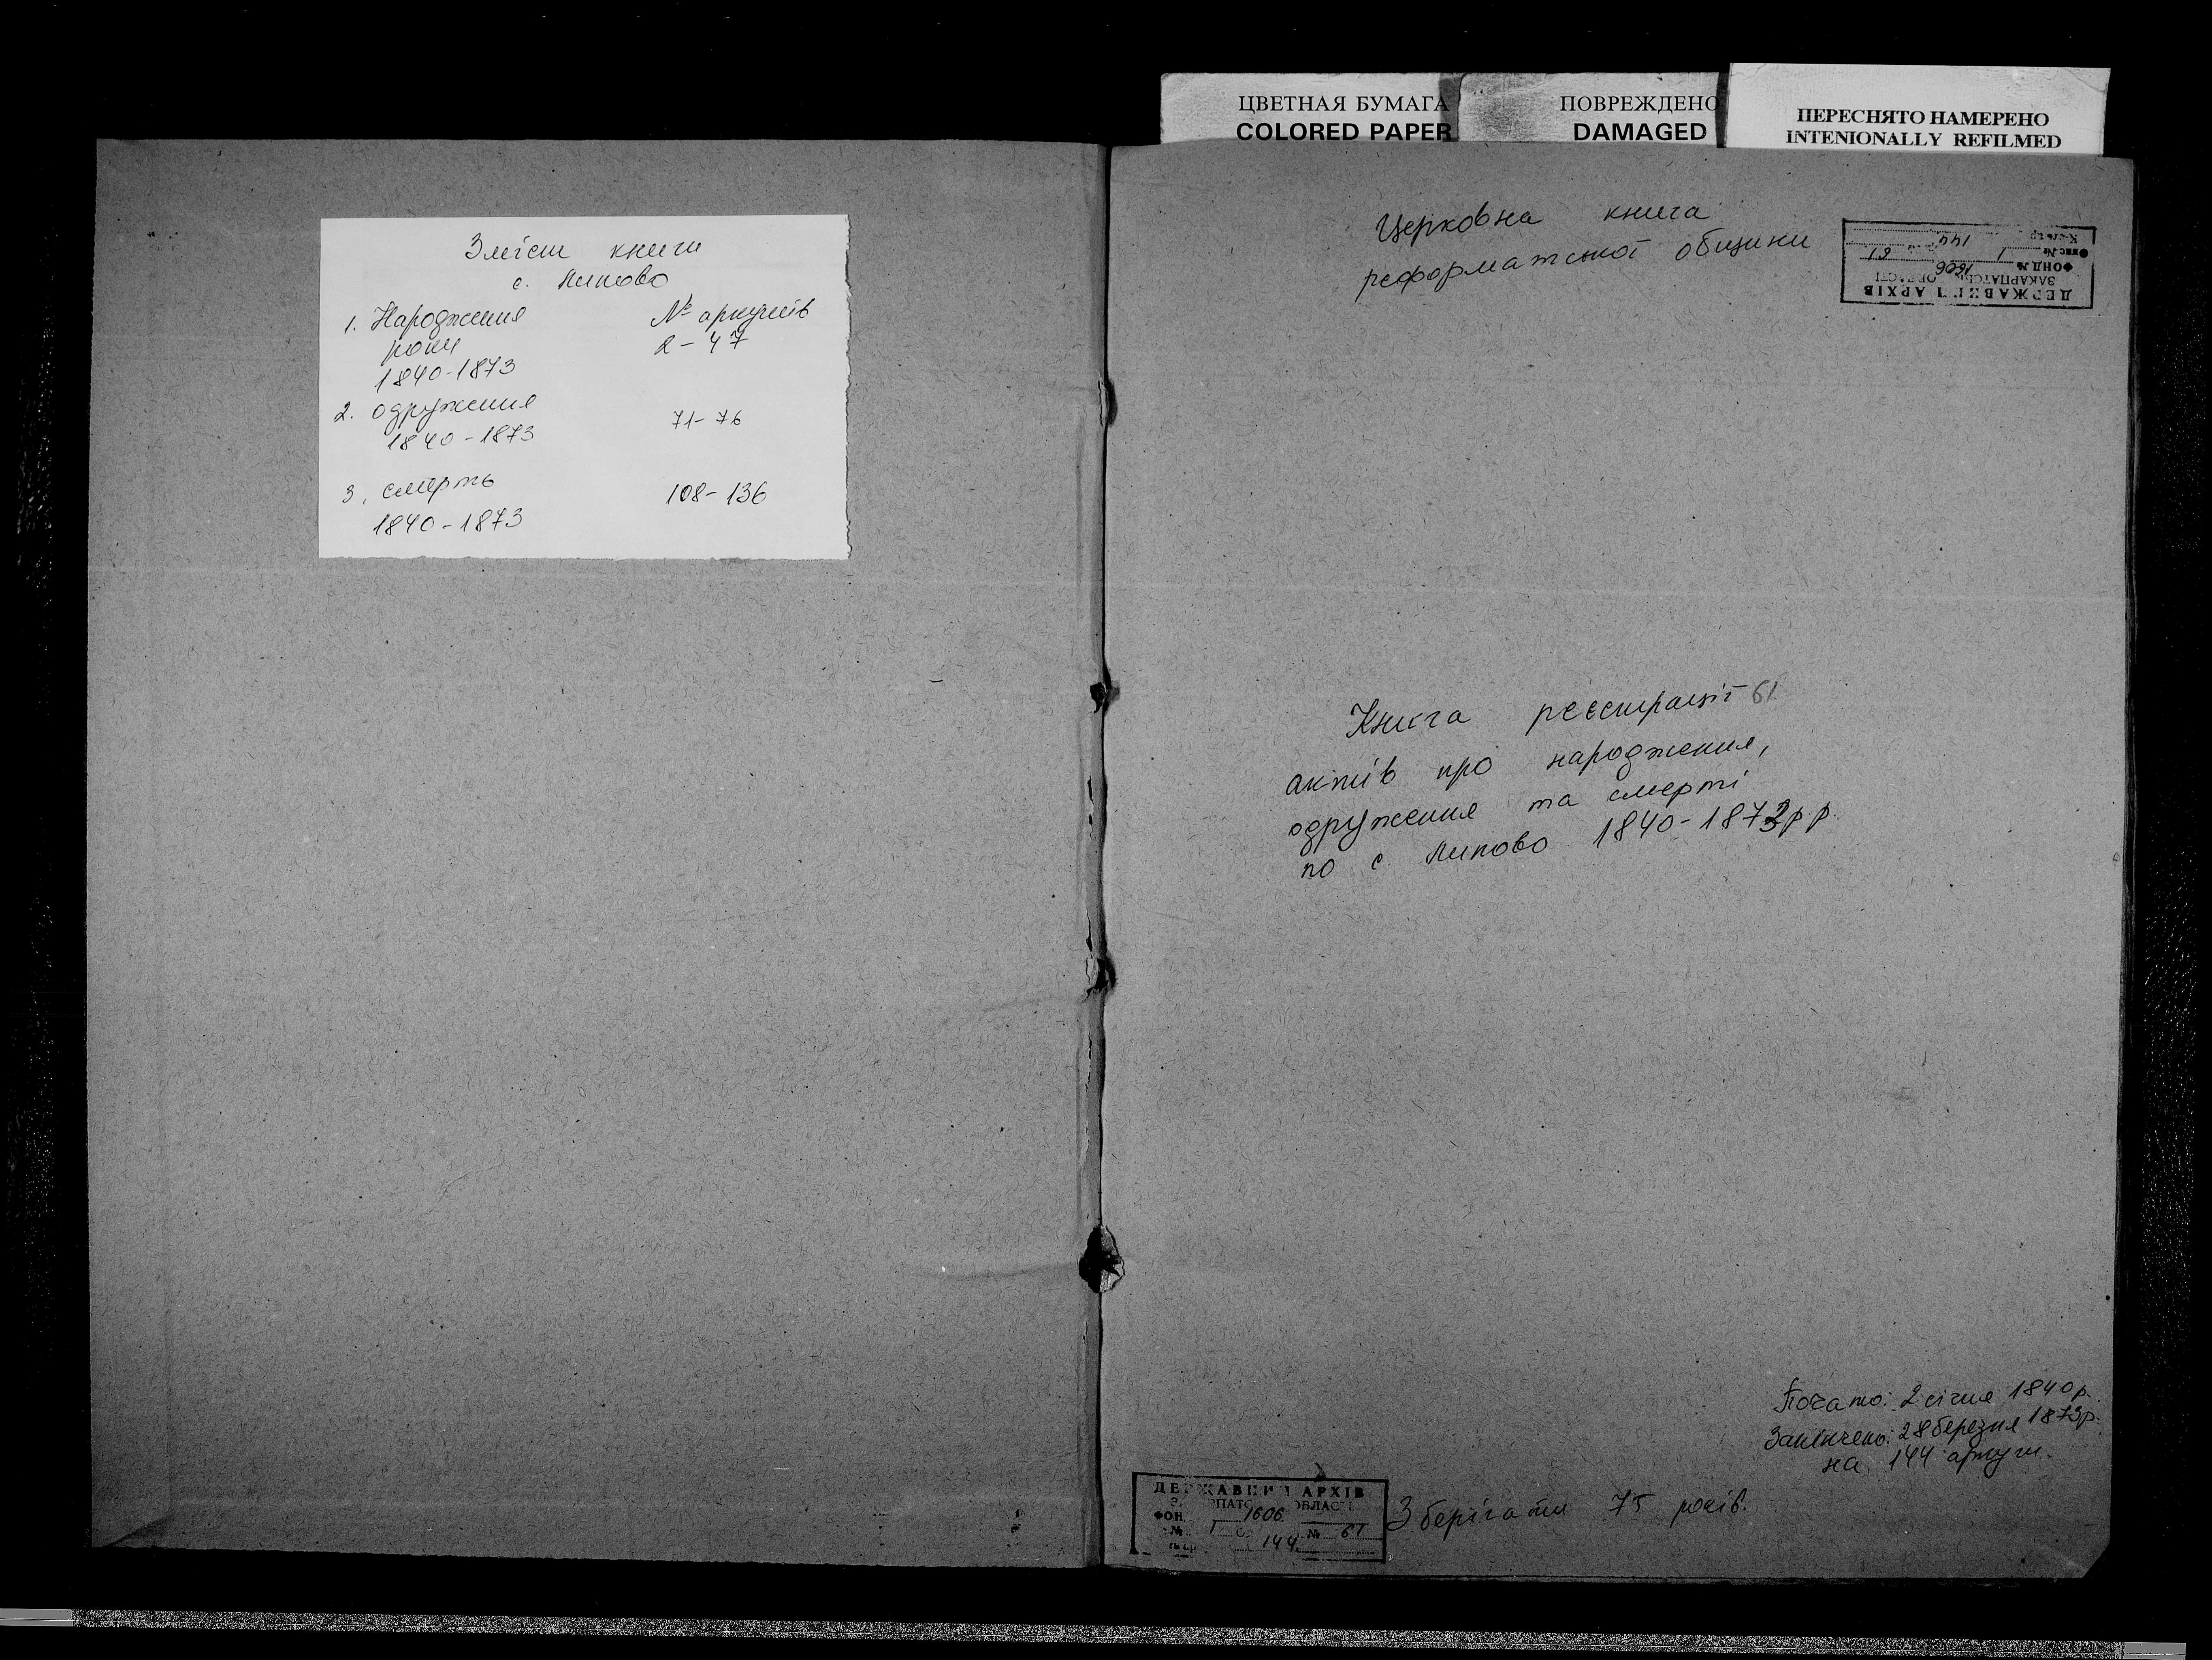 ЦВЕТНАЯ БУМАГА
COLORED PAPER
ПОВРЕЖДЕНО
DAMAGED
ПЕРЕСНЯТО НАМЕРЕНО
INTENIONALLY REFILMED
Зміст книги
с. Липово
1. Народження № аркушів
роки 2-47
1840-1873
2. одруження
1840-1873 71-76
3. смерть 108-136
1840-1873
Церковна книга
реформатської общини
ДЕРЖАВНИЙ АРХІВ
ЗАКАРПАТСЬК ОБЛАСТІ
ФОНД № 1606
Опис № 1 61
К-сть арк. 144
Книга реєстрації 61
актів про народження,
одруження та смерті
по с. Липово 1840-1873 р р.
Почато: 2 січня 1840 р.
Закінчено: 28 березня 1873 р.
на 144 аркуш.
ДЕРЖАВНИЙ АРХІВ
ОБЛАСТ
ФОН. 1606
№ 1 № 61
144
Зберігати 75 років.